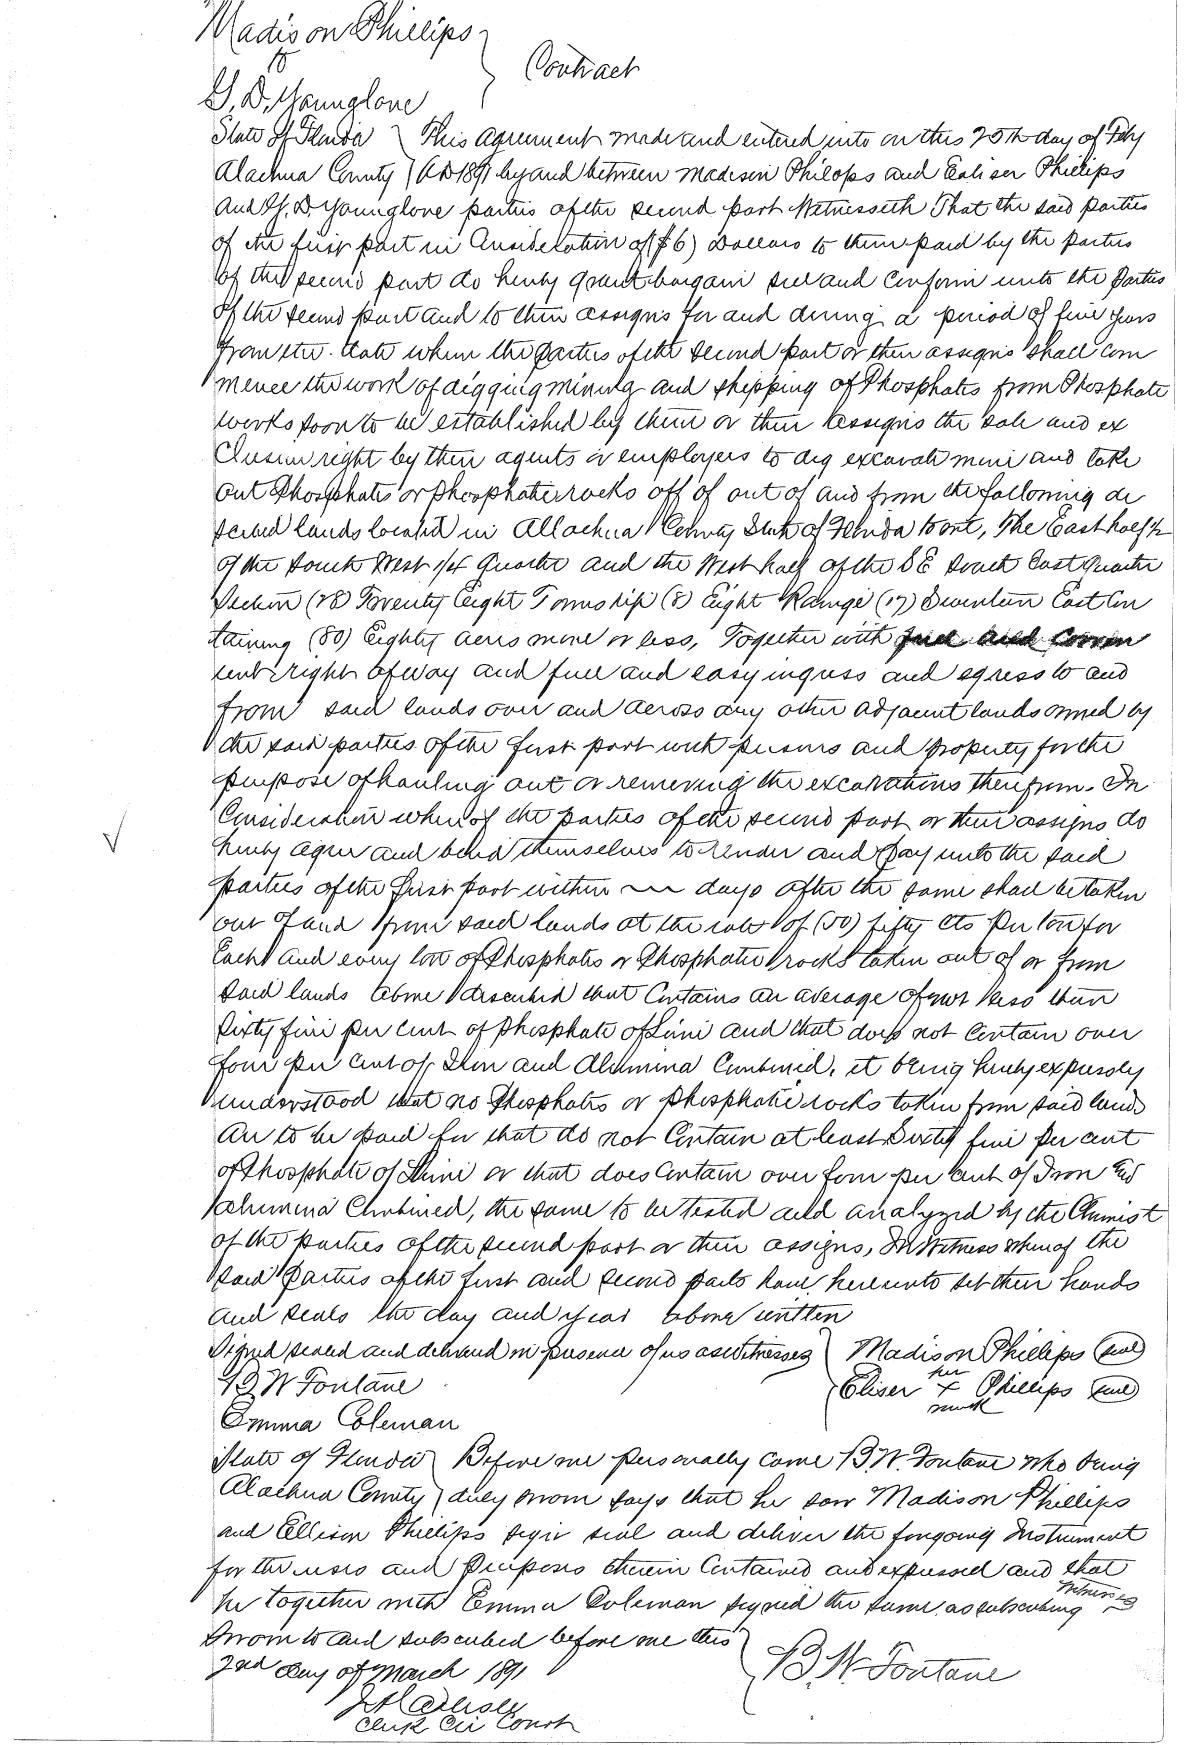 Madison Phillips
to
Contract
G. D. Younglove
State of Florida This agreement made and entered into on this 25th day of Feby
Alachua County AD 1891 by and between Madison Philops and Ealiser Phillips
and G. D. Younglove parties of the second part Witnesseth That the said parties
of the first part in Consideration of ($6) Dollars to them paid by the parties
of the second part do hereby grant bargain sell and Confirm unto the parties
of the second part and to their assigns for and during a period of five years
from the date when the parties of the second part or their assigns shall com
mence the work of digging mining and shipping of Phosphates from Phosphate
works soon to be established by them or their assigns the sole and ex
clusive right by their agents or employers to dig excavate mine and take
out Phosphates or phosphatic rocks off of out of and from the following de
scribed lands located in Allachua County State of Florida to wit, The East half 1/2
of the South West 1/4 Quarter and the West half of the SE South East Quarter
Section (28) Twenty Eight Township (8) Eight Range (17) Seventeen East Con
taining (80) Eighty acres more or less, Together with free and conven
ient right of way and free and easy ingress and egress to and
from said lands over and across any other adjacent lands owned by
the said parties of the first part with persons and property for the
purpose of hauling out or removing the excavations therefrom. In
Consideration whereof the parties of the second part or their assigns do
hereby agree and bind themselves to render and pay unto the said
parties of the first part within days after the same shall be taken
out of and from said lands at the rate of (50) fifty cts per ton for
Each and every ton of Phosphates or Phosphatic rocks taken out of or from
said lands above described that Contains an average of not less than
Sixty five per cent of phosphate of Lime and that does not contain over
four per cent of Iron and Alumina Combined, it being hereby expressly
understood that no Phosphates or phosphatic rocks taken from said lands
are to be paid for that do not Contain at least Sixty five per cent
of Phosphate of Lime or that does Contain over four per cent of Iron and
alumina Combined, the same to be tested and analyzed by the Chemist
of the parties of the second part or their assigns, In Witness whereof the
said parties of the first and second parts have hereunto set their hands
and seals the day and year above written
Signed sealed and delivered in presence of us as witnesses Madison Phillips seal
B W Fontane Eliser her x mark Phillips seal
Emma Coleman
State of Florida Before me personally came B. W. Fontane who being
Alachua County duly sworn says that he saw Madison Phillips
and Ellison Phillips sign seal and deliver the foregoing Instrument
for the uses and purposes therein Contained and expressed and that
he together with Emma Coleman signed the same as subscribing witnesses
Sworn to and subscribed before me this
2nd day of March 1891 B. W. Fontane
Clerk Cir Court